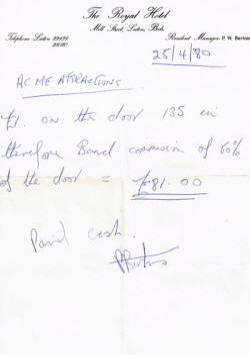 The Royal Hotel
Mill Street, Luton, Beds.
Telephone Luton 29131
Resident Manager: P. W. Barton
25/4/80
ACME ATTRACTIONS
£1. on the door 135 in
therefore Band commission of 60%
of the door = £81.00
Paid cash.
PBarton